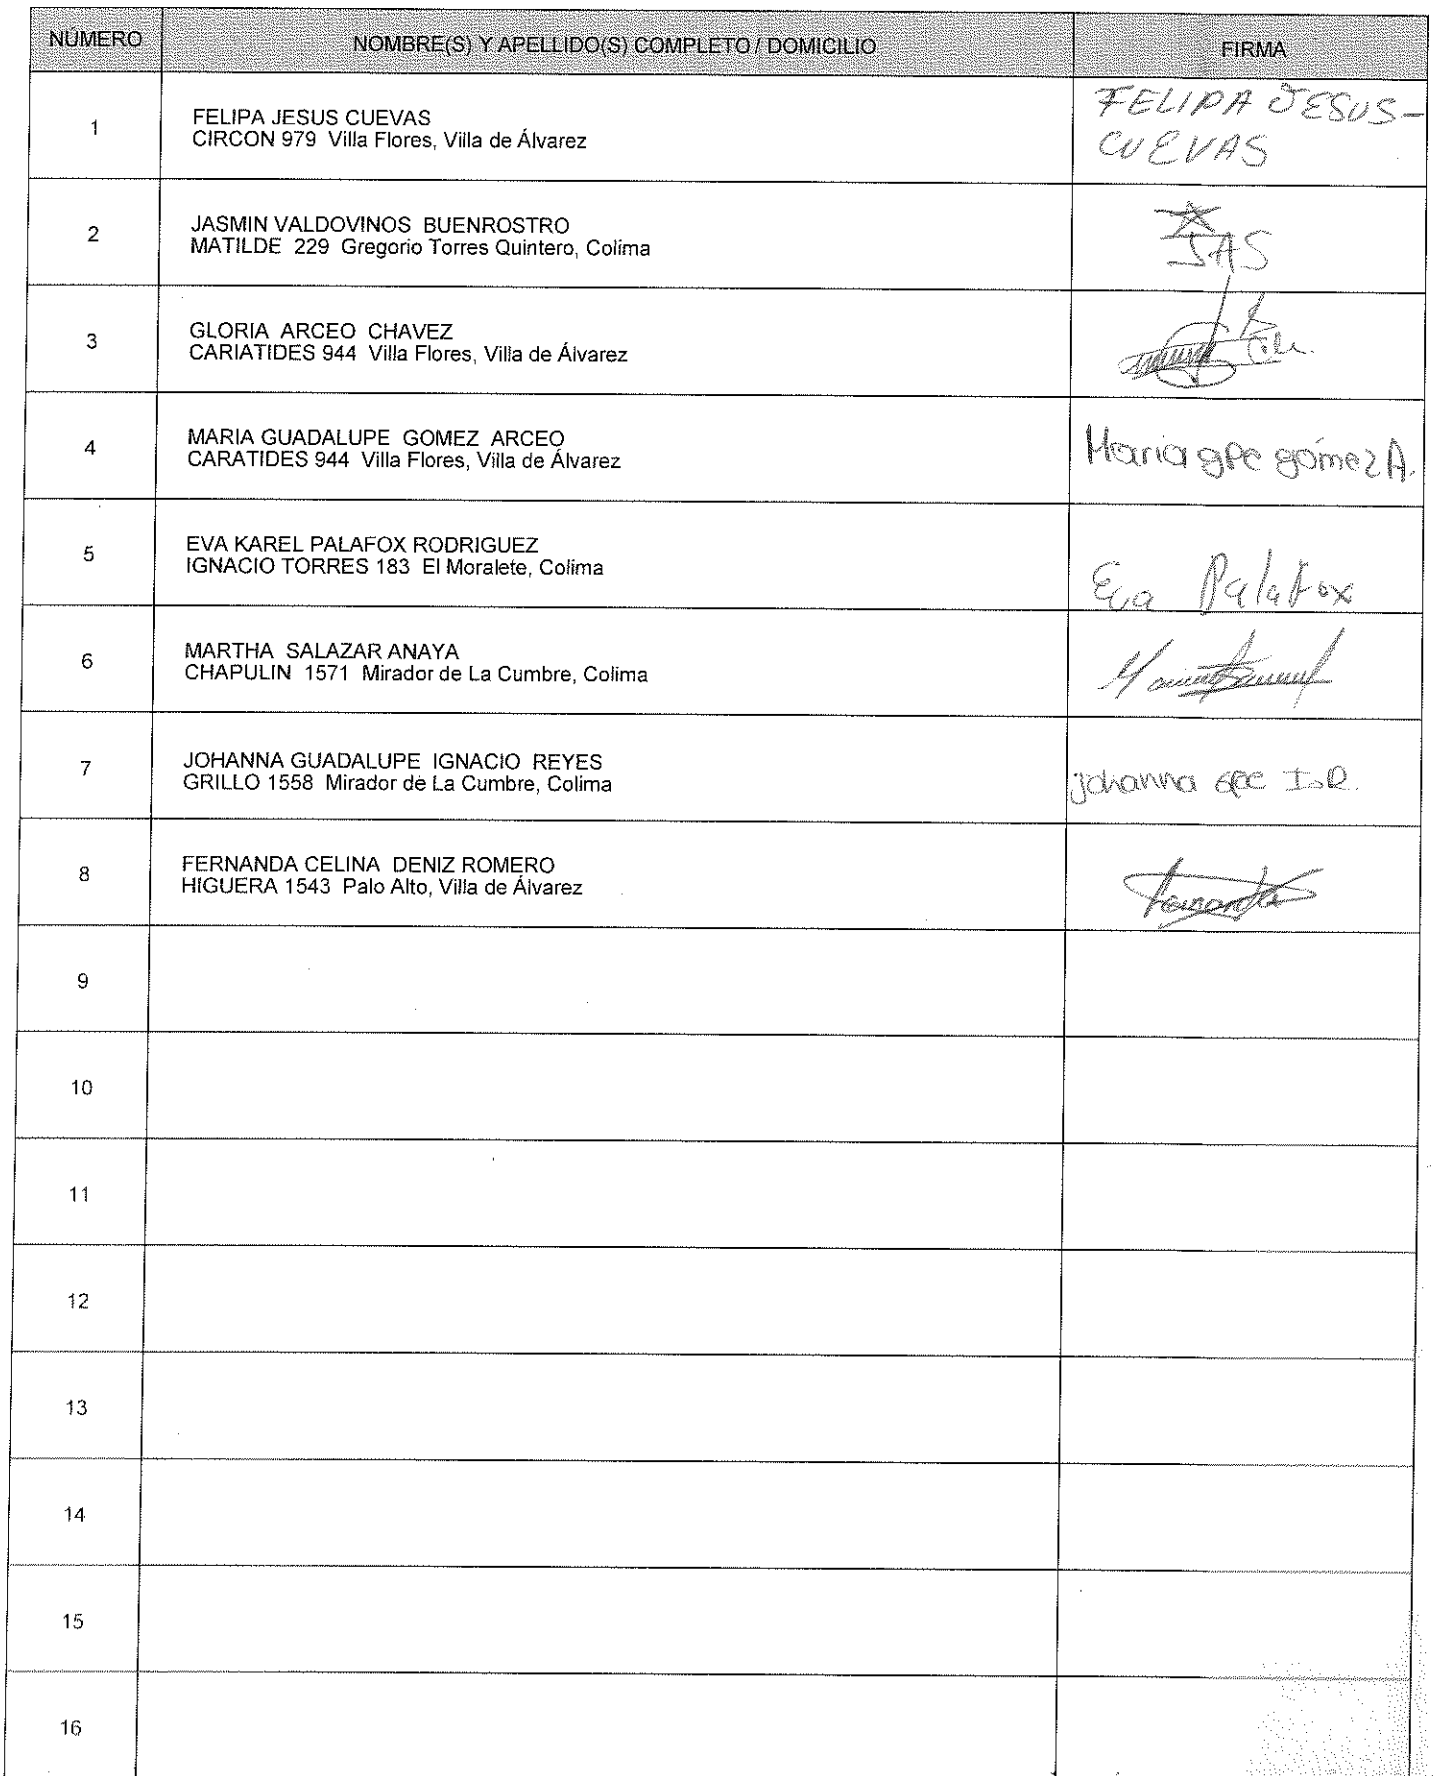 NUMERO NOMBRE(S) Y APELLIDO(S) COMPLETO / DOMICILIO FIRMA
1 FELIPA JESUS CUEVAS
CIRCON 979 Villa Flores, Villa de Álvarez
FELIPA JESUS-
CUEVAS
2 JASMIN VALDOVINOS BUENROSTRO
MATILDE 229 Gregorio Torres Quintero, Colima
JAS
3 GLORIA ARCEO CHAVEZ
CARIATIDES 944 Villa Flores, Villa de Álvarez
4 MARIA GUADALUPE GOMEZ ARCEO
CARATIDES 944 Villa Flores, Villa de Álvarez
Maria gpe gómez A.
5 EVA KAREL PALAFOX RODRIGUEZ
IGNACIO TORRES 183 El Moralete, Colima
Eva Palafox
6 MARTHA SALAZAR ANAYA
CHAPULIN 1571 Mirador de La Cumbre, Colima
7 JOHANNA GUADALUPE IGNACIO REYES
GRILLO 1558 Mirador de La Cumbre, Colima
johanna gpe I.R.
8 FERNANDA CELINA DENIZ ROMERO
HIGUERA 1543 Palo Alto, Villa de Álvarez
Fernanda
9
10
11
12
13
14
15
16